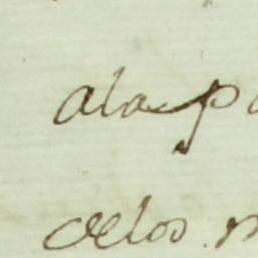 ala
delos